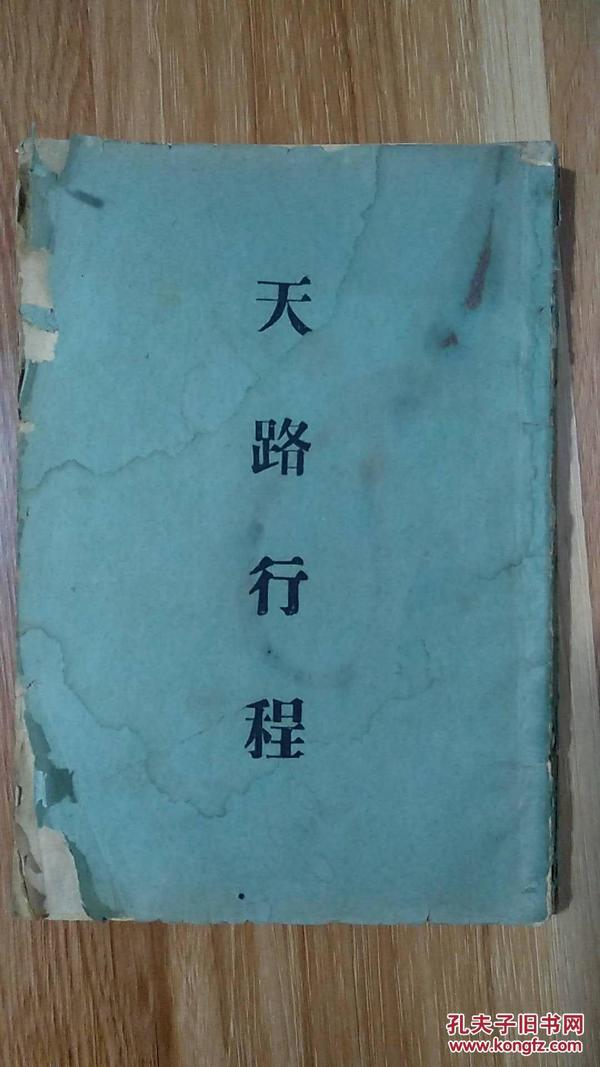 天路行程
孔夫子旧书网
www.kongfz.com